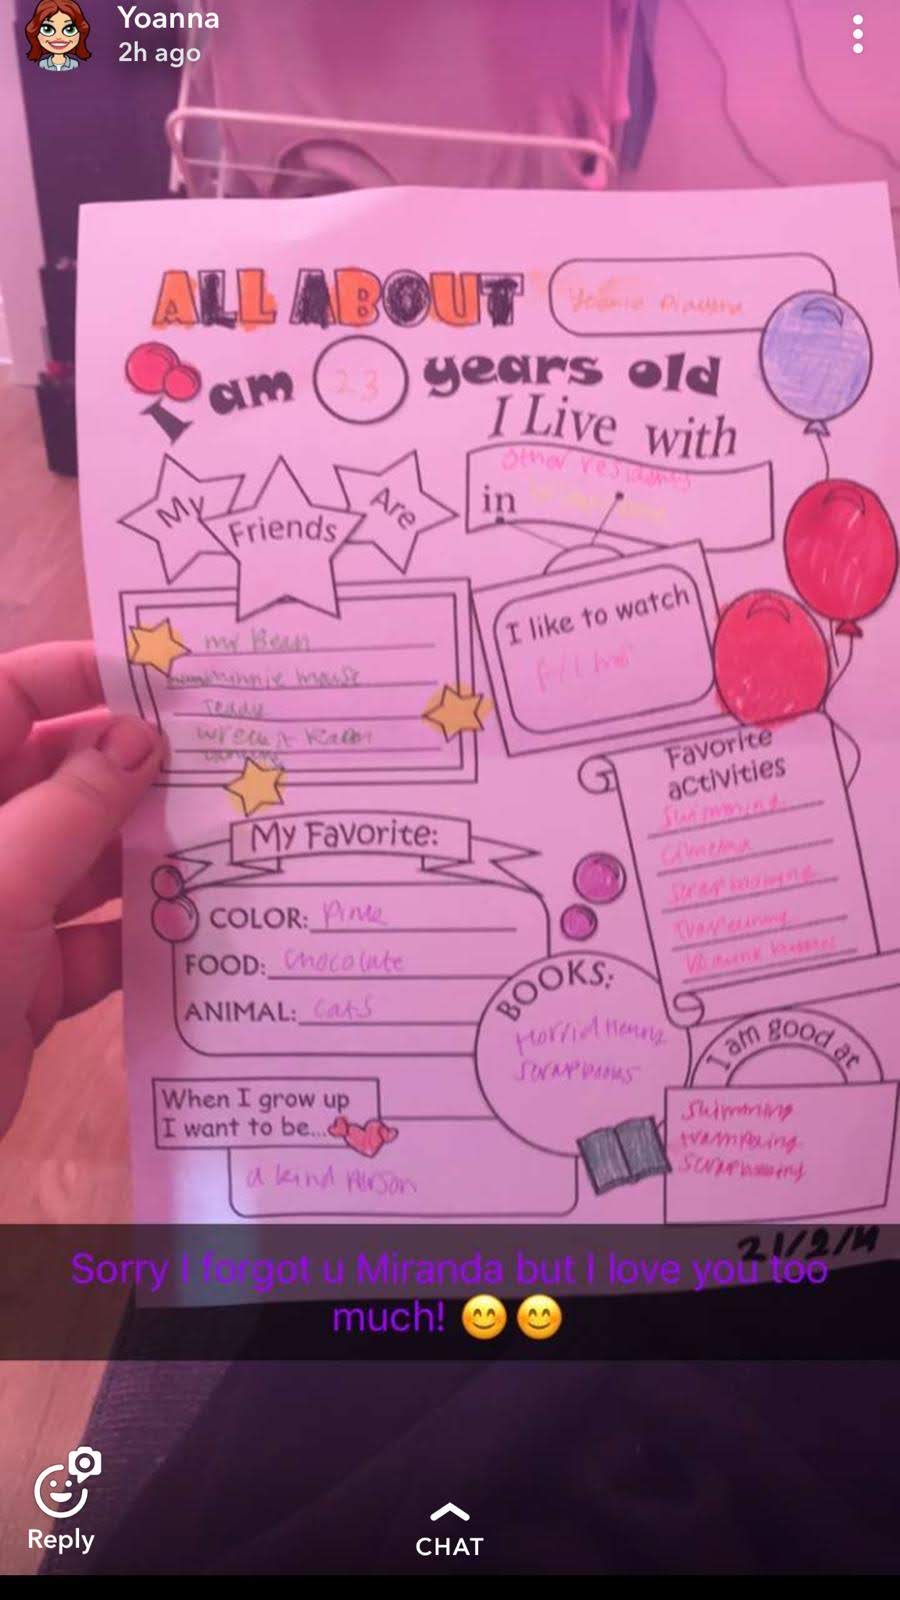 Yoanna
2h ago
ALL ABOUT
I am 23 years old
I Live with
other residents
in
My Friends Are
my Bean
minnie mouse
Teddy
wreck it Ralph
I like to watch
films
Favorite
activities
Swimming
Cinema
scrapbooking
Trampolining
My Favorite:
COLOR: Pink
FOOD: Chocolate
ANIMAL: Cats
BOOKS:
Horrid Henry
Scrapbooks
I am good at
Swimming
trampolining
Scrapbooking
When I grow up
I want to be...
a kind Person
Sorry I forgot u Miranda but I love you too
much! 😊😊
Reply
CHAT